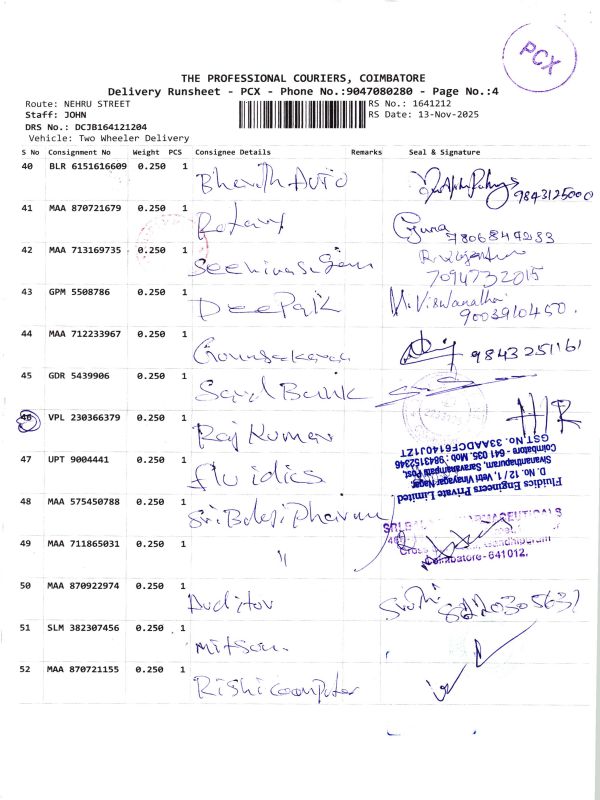 PCX
THE PROFESSIONAL COURIERS, COIMBATORE
Delivery Runsheet - PCX - Phone No.:9047080280 - Page No.:4
Route: NEHRU STREET
RS No.: 1641212
Staff: JOHN
RS Date: 13-Nov-2025
DRS No.: DCJB164121204
Vehicle: Two Wheeler Delivery
S No Consignment No Weight PCS Consignee Details Remarks Seal & Signature
40 BLR 6151616609 0.250 1 Bharath Auto 9843125000
41 MAA 870721679 0.250 1 Rotary Guna 7806849233
42 MAA 713169735 0.250 1 7094732015
43 GPM 5508786 0.250 1 Deepak M. Viswanathan 9003910450.
44 MAA 712233967 0.250 1 Gounsekaran 9843251161
45 GDR 5439906 0.250 1 Bank
46 VPL 230366379 0.250 1 Raj Kumar HR
47 UPT 9004441 0.250 1 fluidics
Fluidics Engineers Private Limited
D. No. 12 / 1, Vetri Vinayagar Nagar,
Sivananthapuram, Saravanampatti Post,
Coimbatore - 641 035. Mob : 9843152346
GST No. 33AADCF6140J1ZT
48 MAA 575450788 0.250 1 Sri Balaji Pharma
49 MAA 711865031 0.250 1 "
Coimbatore-641012.
50 MAA 870922974 0.250 1 Auditor Sruthi
51 SLM 382307456 0.250 1 mitsou.
52 MAA 870721155 0.250 1 Rishi computer